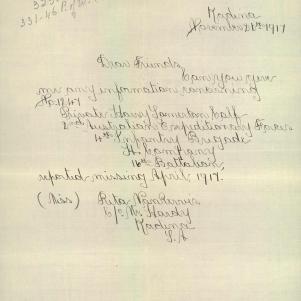 331-46 P. of W.
Kadina
November 21st 1917
Dear Friends,
Can you give
me any information concerning
No 1747
Private Harry Somerton Calf
2nd Australian Expeditionary Forces
4th Infantry Brigade
H. Company
16th Battalion,
reported missing April, 1917.
(Miss) Rita
C/o Mr Hardy
Kadina
S.A